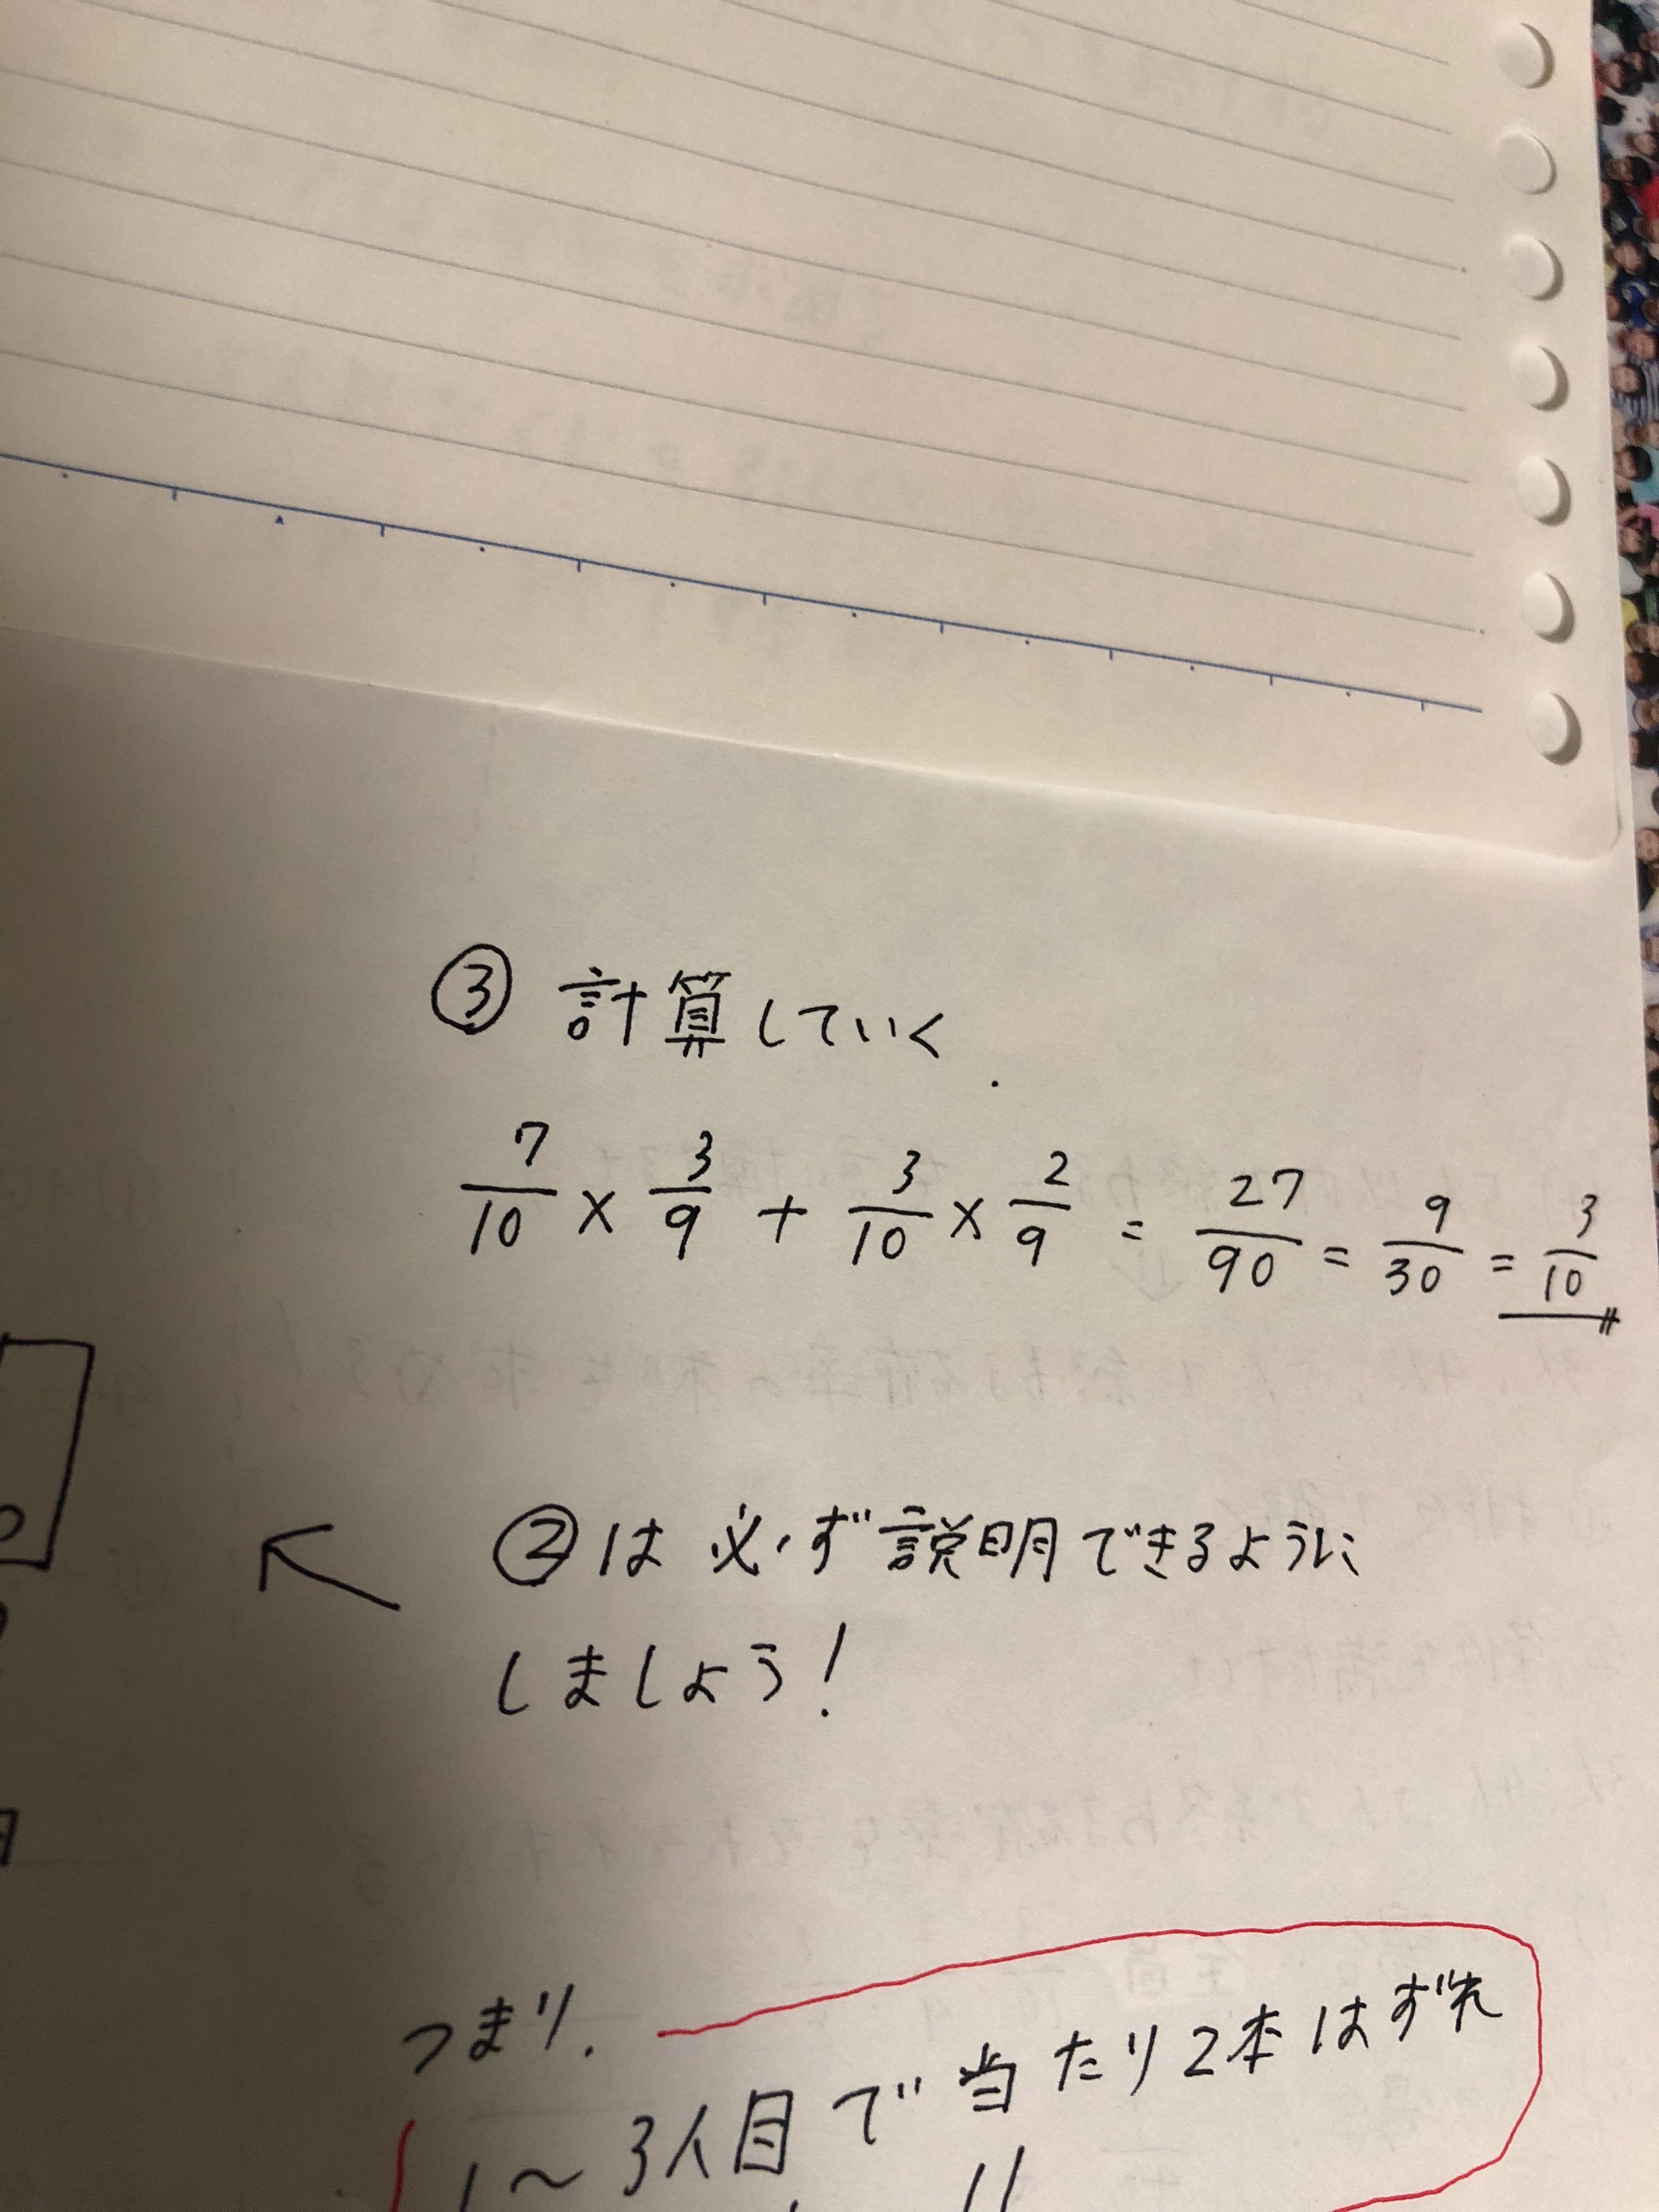 ③ 計算していく.
7/10 × 3/9 + 3/10 × 2/9 = 27/90 = 9/30 = 3/10
②は必ず説明できるように
しましょう!
つまり.
1〜3人目で当たり2本はずれ